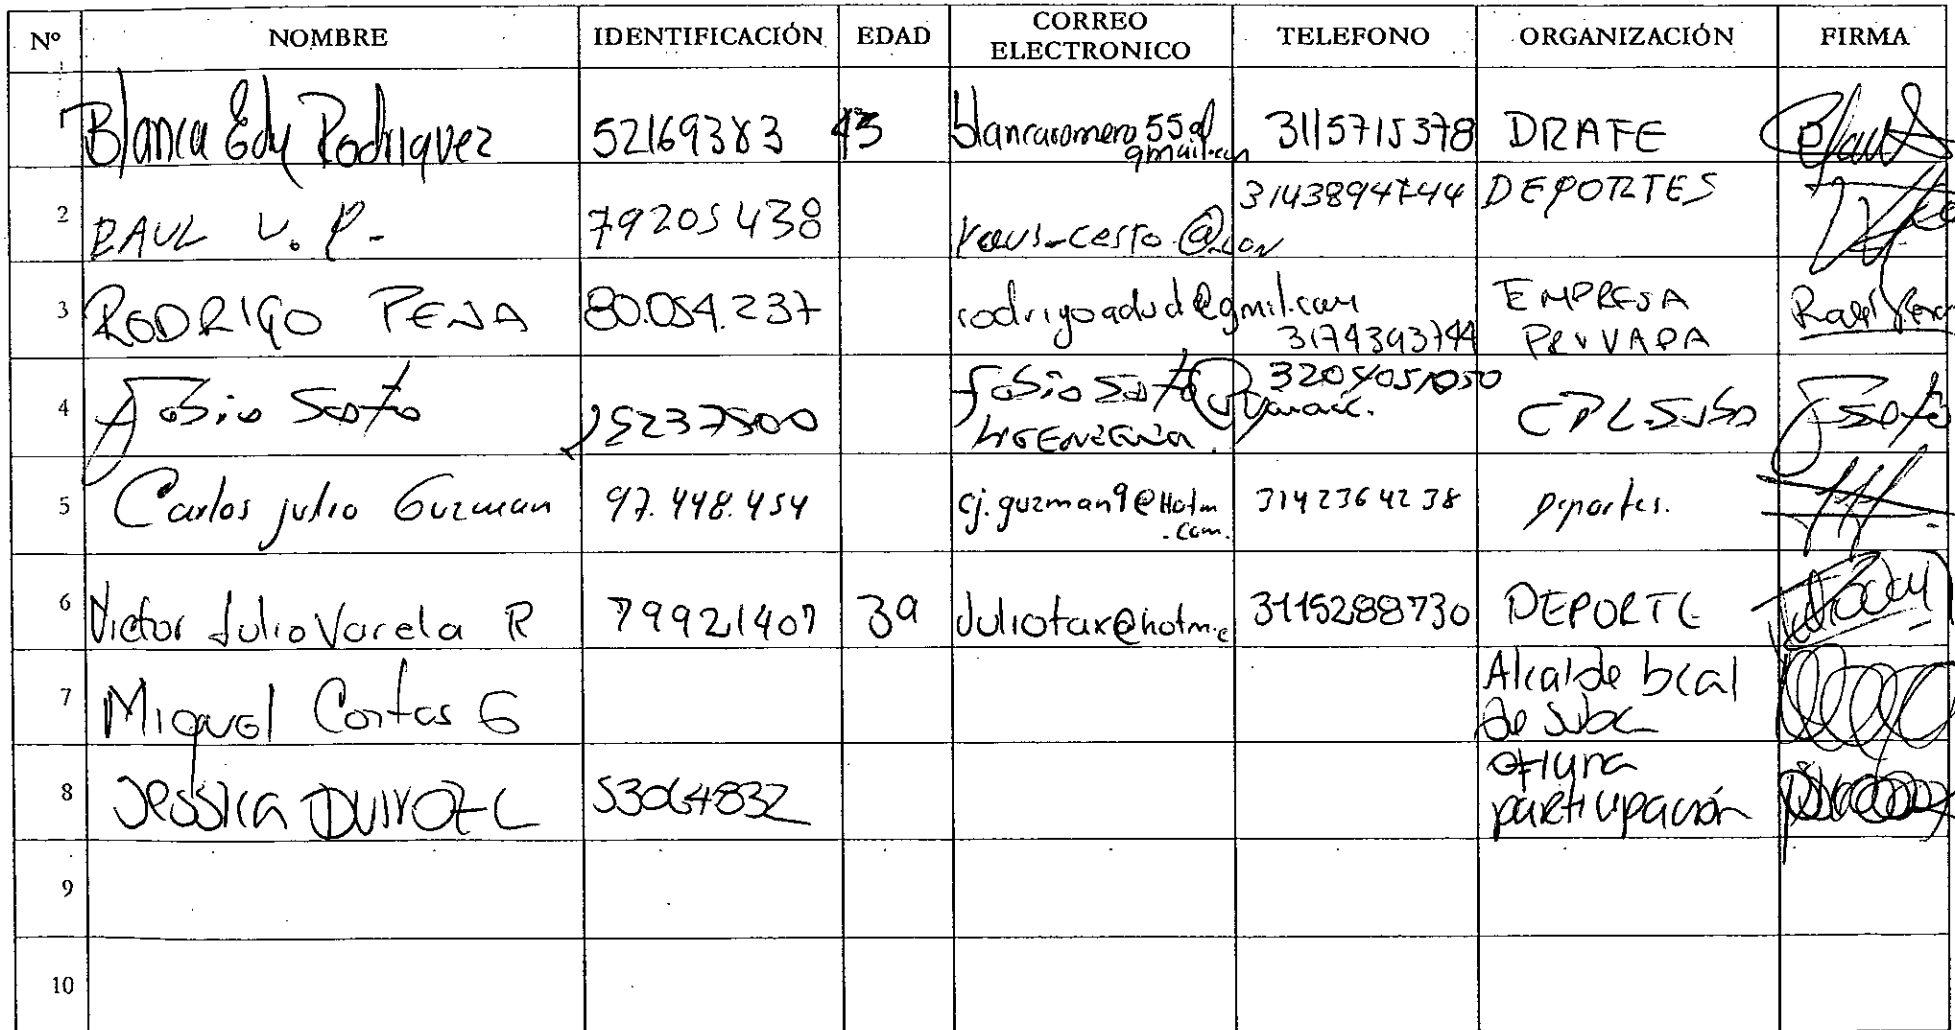 Nº NOMBRE IDENTIFICACIÓN EDAD CORREO ELECTRONICO TELEFONO ORGANIZACIÓN FIRMA
1 Blanca Edy Rodriguez 52169383 43 blancaromero55@gmail.com 3115715378 DRAFE
2 RAUL V. P. 79205438 3143894744 DEPORTES
3 RODRIGO PENA 80.054.237 rodrigoadud@gmil.com 3174393744 EMPRESA PRIVADA
4 Fabio Soto 3204051050 CPL Suba
5 Carlos julio Guzman 97.448.454 cj.guzman9@Hotm.com. 3142364238 Deportes.
6 Victor Julio Varela R 79921407 39 Juliotax@hotm.c 3115288730 DEPORTE
7 Miguel Cortes G Alcalde local de Suba
8 Jessica 53064832 oficina participación
9
10